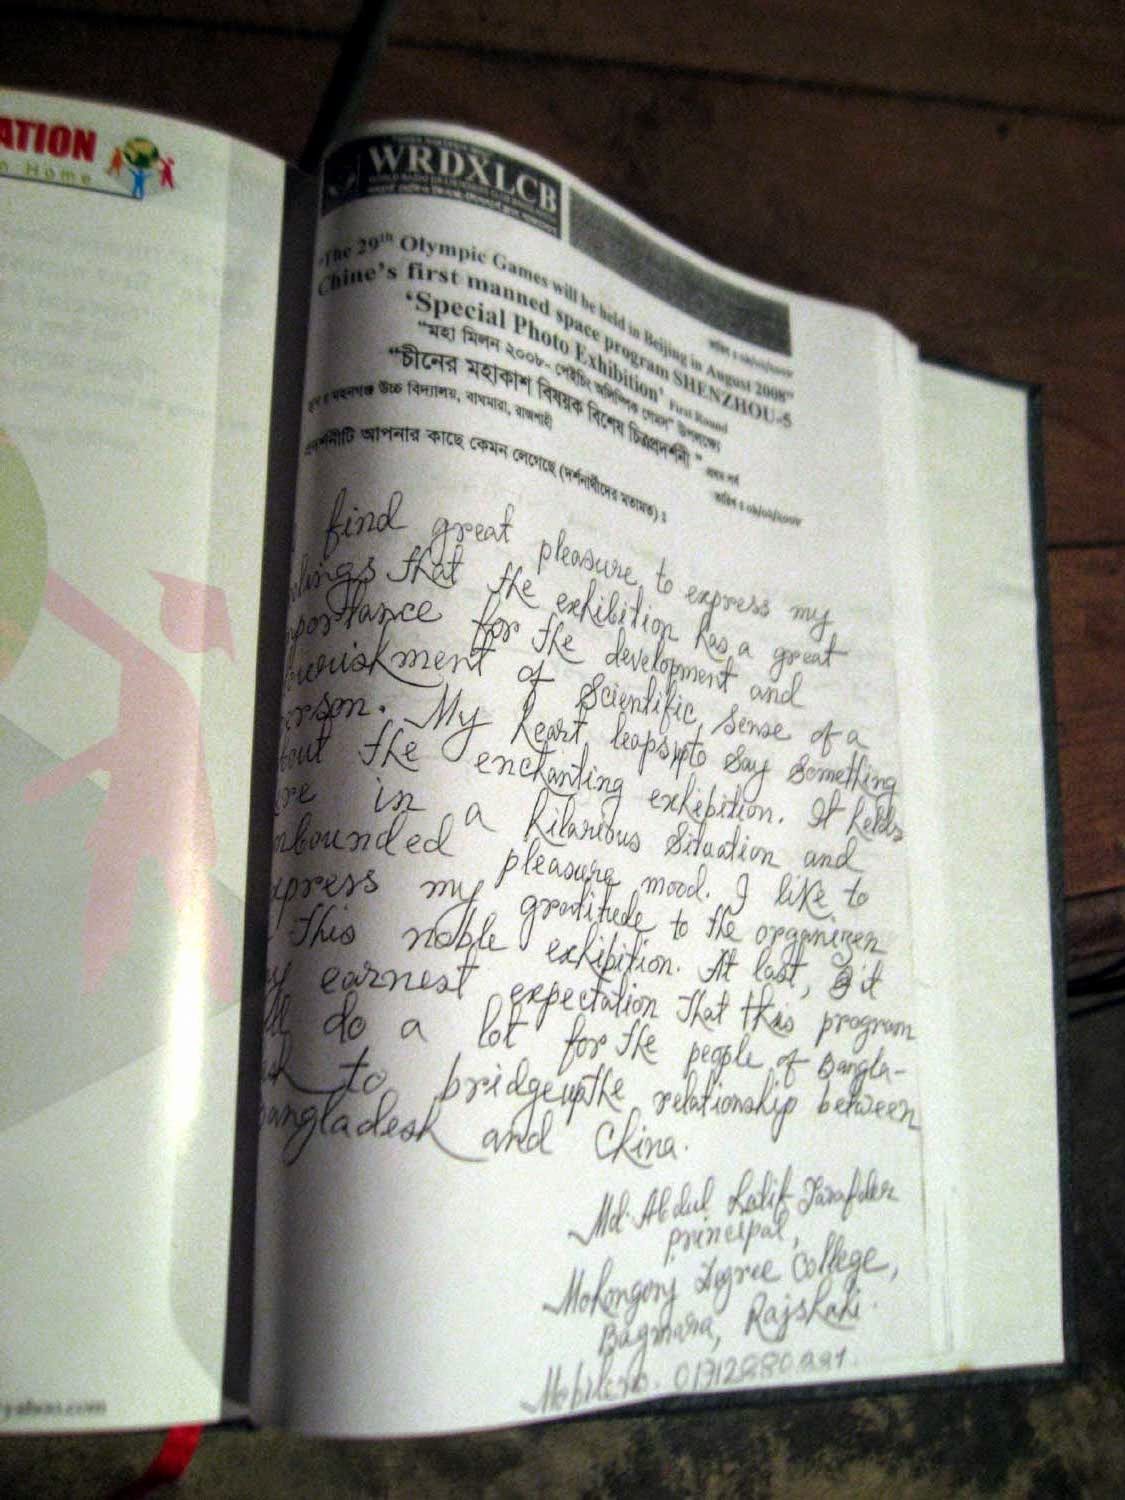 ATION
n Home
WRDXLCB
"The 29th Olympic Games will be held in Beijing in August 2008"
Chine's first manned space program SHENZHOU-5
'Special Photo Exhibition' First Round
"মহা মিলন ২০০৮- পেইচিং অলিম্পিক গেমস" উপলক্ষ্যে
"চীনের মহাকাশ বিষয়ক বিশেষ চিত্রপ্রদর্শনী" প্রথম পর্ব
মহনগঞ্জ উচ্চ বিদ্যালয়, বাঘমারা, রাজশাহী
প্রদর্শনীটি আপনার কাছে কেমন লেগেছে (দর্শনার্থীদের মতামত) :
find great pleasure to express my
elings that the exhibition has a great
mportance for the development and
ourishment of Scientific sense of a
erson. My heart leaps upto say something
bout the enchanting exhibition. It helds
are in a hilarious situation and
nbounded pleasure mood. I like to
xpress my gratitude to the organizer
this noble exhibition. At last, it
my earnest expectation that this program
ll do a lot for the people of Bangla-
sh to bridge up the relationship between
Bangladesh and China.
Md. Abdul Latif Tarafder
principal,
Mohongonj Degree College,
Bagmara, Rajshahi.
Mobile no.
yahoo.com